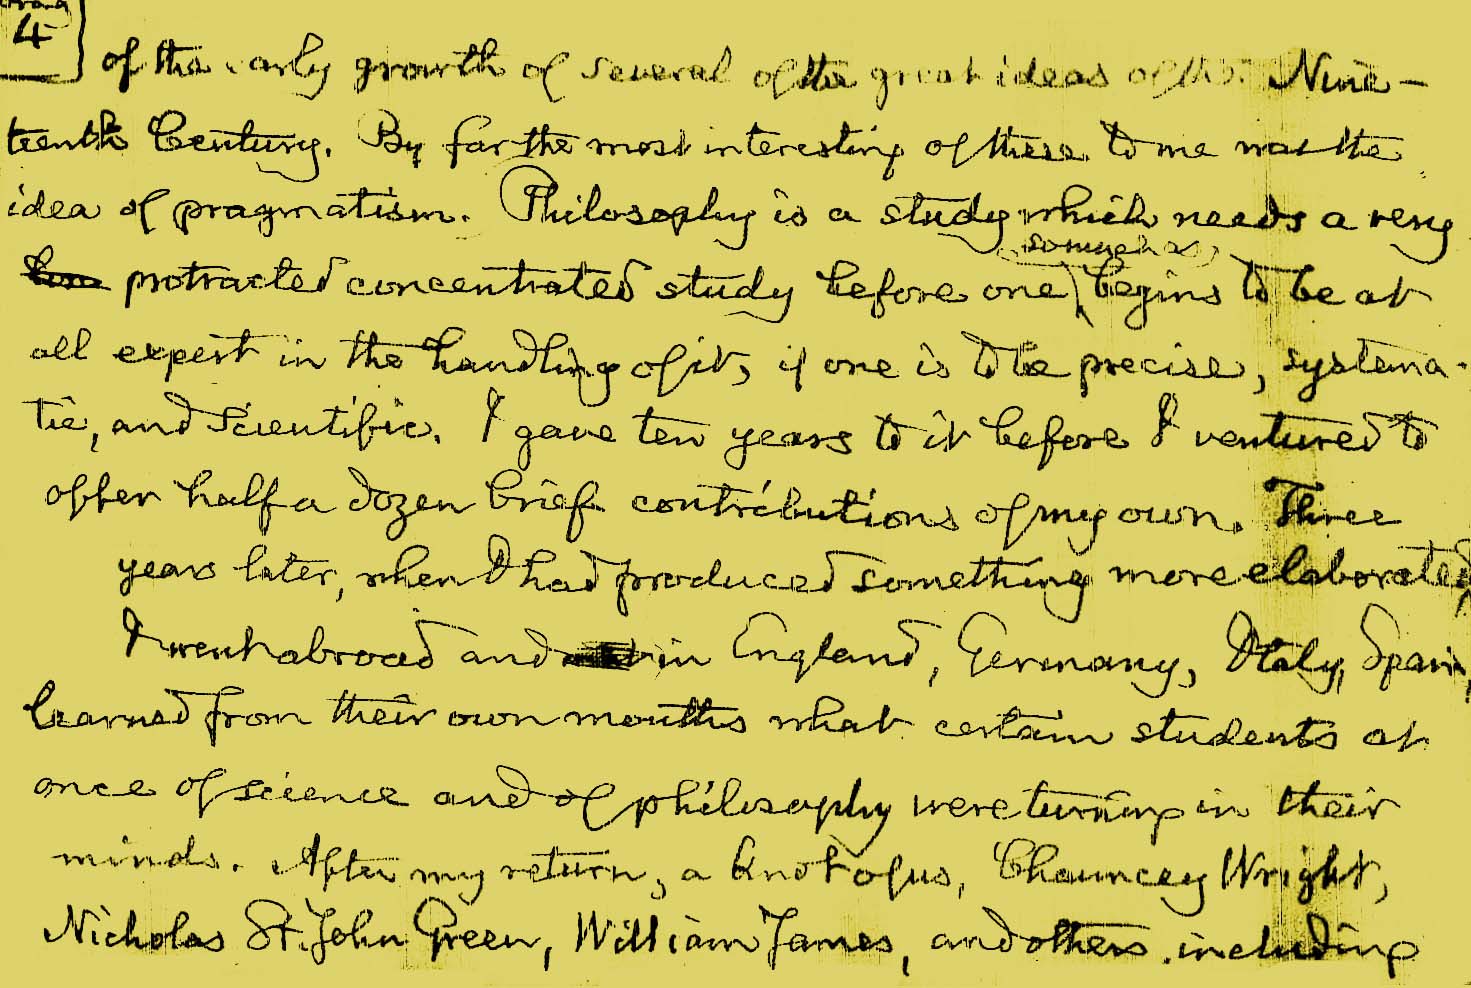 4
of the early growth of several of the great ideas of the Nine-
teenth Century. By far the most interesting of these to me was the
idea of pragmatism. Philosophy is a study which needs a very
so much as
protracted concentrated study before one begins to be at
all expert in the handling of it, if one is to be precise, systema-
tic, and scientific. I gave ten years to it before I ventured to
offer half a dozen brief contributions of my own. Three
years later, when I had produced something more elaborated,
I went abroad and in England, Germany, Italy, Spain,
learned from their own mouths what certain students at
once of science and of philosophy were turning in their
minds. After my return, a knot of us, Chauncey Wright,
Nicholas St. John Green, William James, and others, including